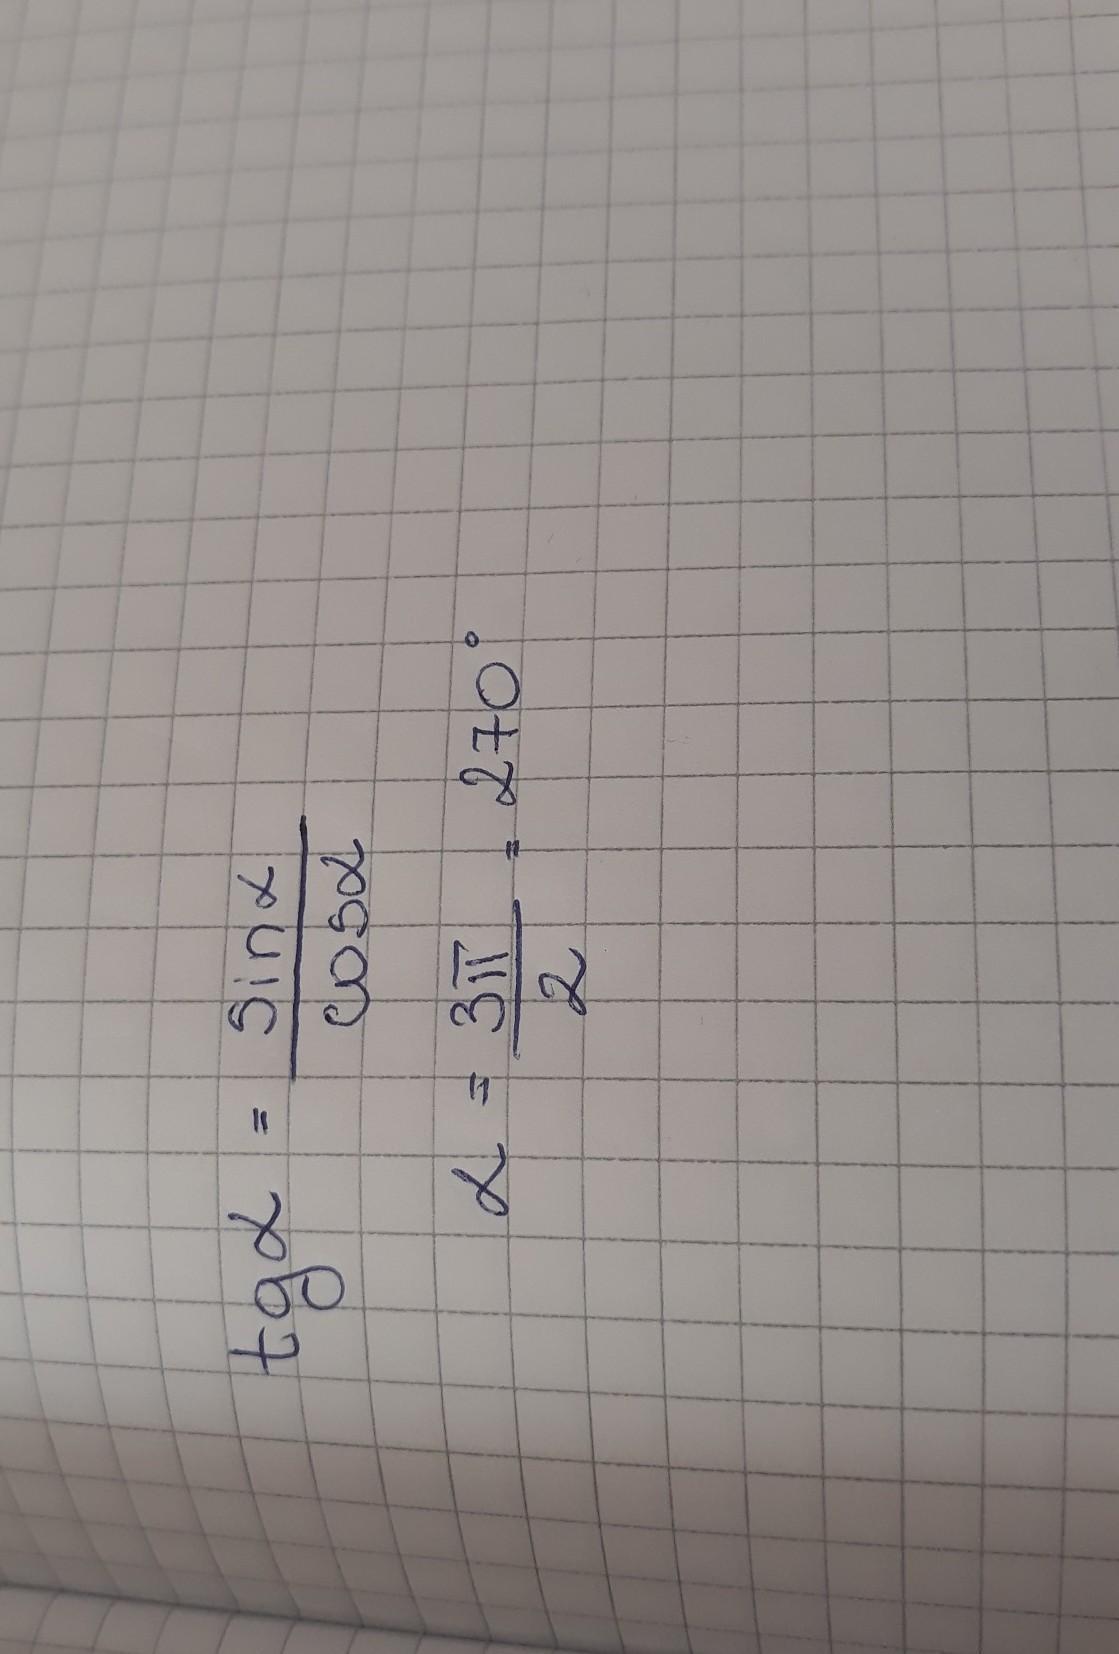 tgα = sinα / cosα
α = 3π / 2 = 270°